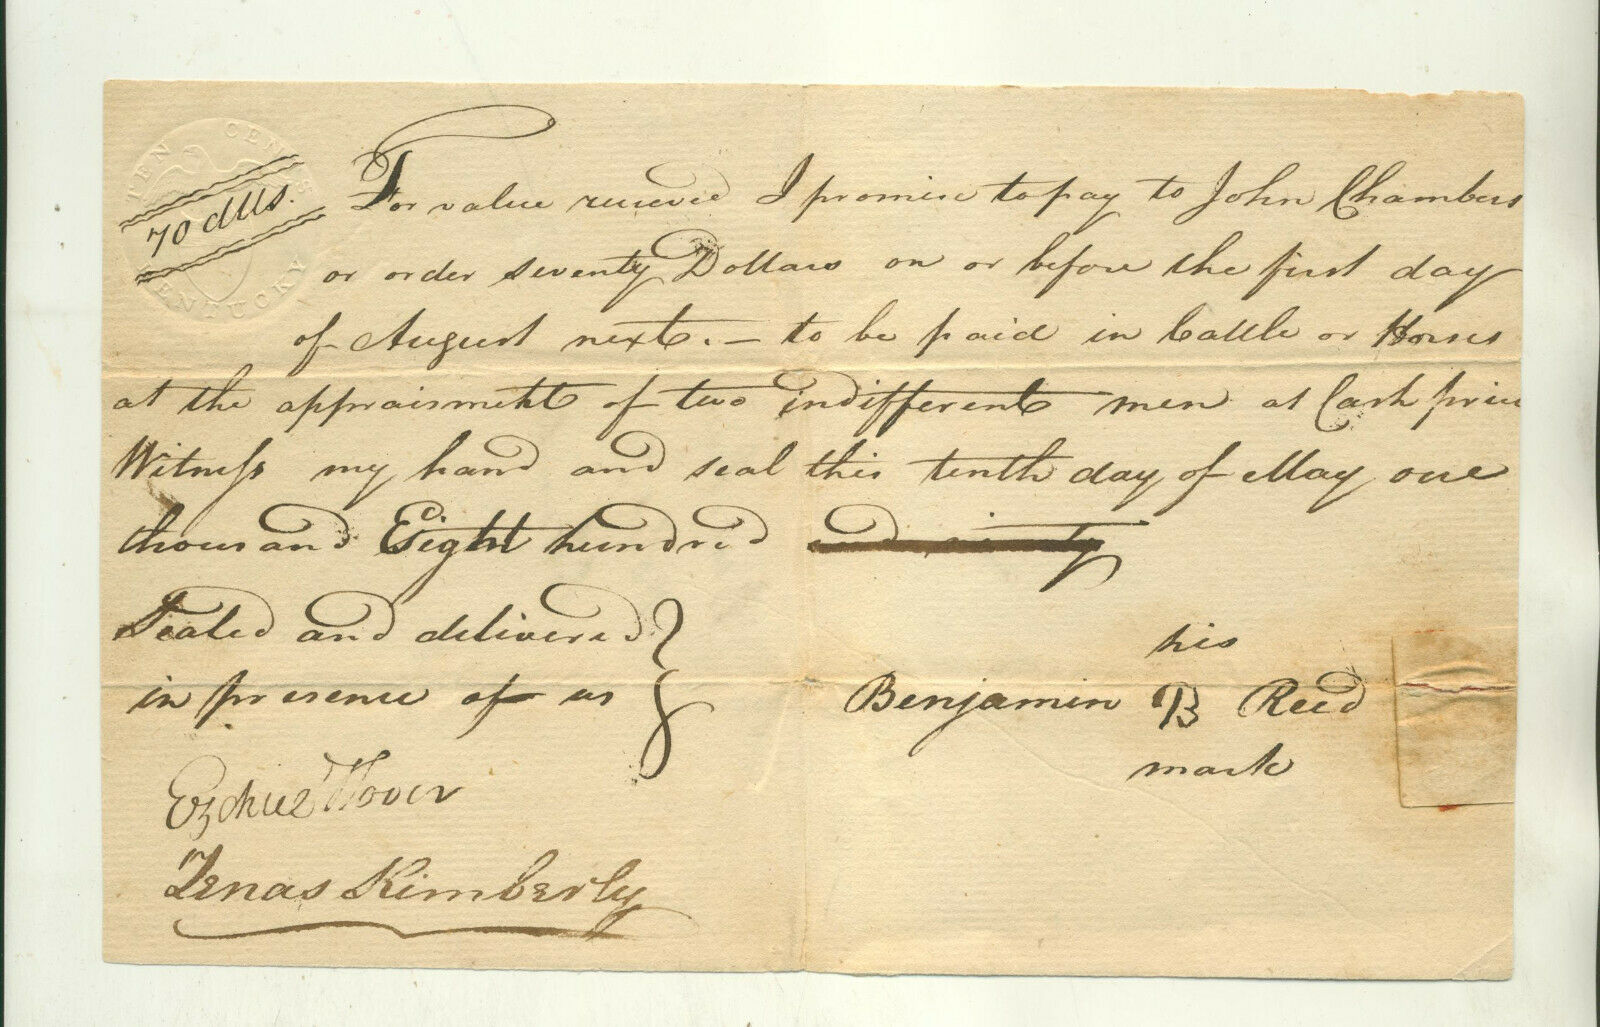 TEN CENTS
KENTUCKY
70 dlls.
For value received I promise to pay to John Chambers
or order seventy Dollars on or before the first day
of August next. – to be paid in Cattle or Horses
at the appraisment of two indifferent men at Cash price
Witness my hand and seal this tenth day of May one
thousand Eight hundred and ninety
Sealed and delivered
in presence of us
his
Benjamin B Reed
mark
Ezekiel Hover
Zenas Kimberly